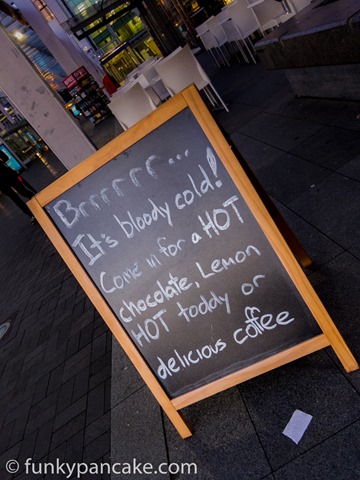 Brrrrrr...
It's bloody cold!
Come in for a HOT
chocolate, Lemon
HOT toddy or
delicious coffee
© funkypancake.com